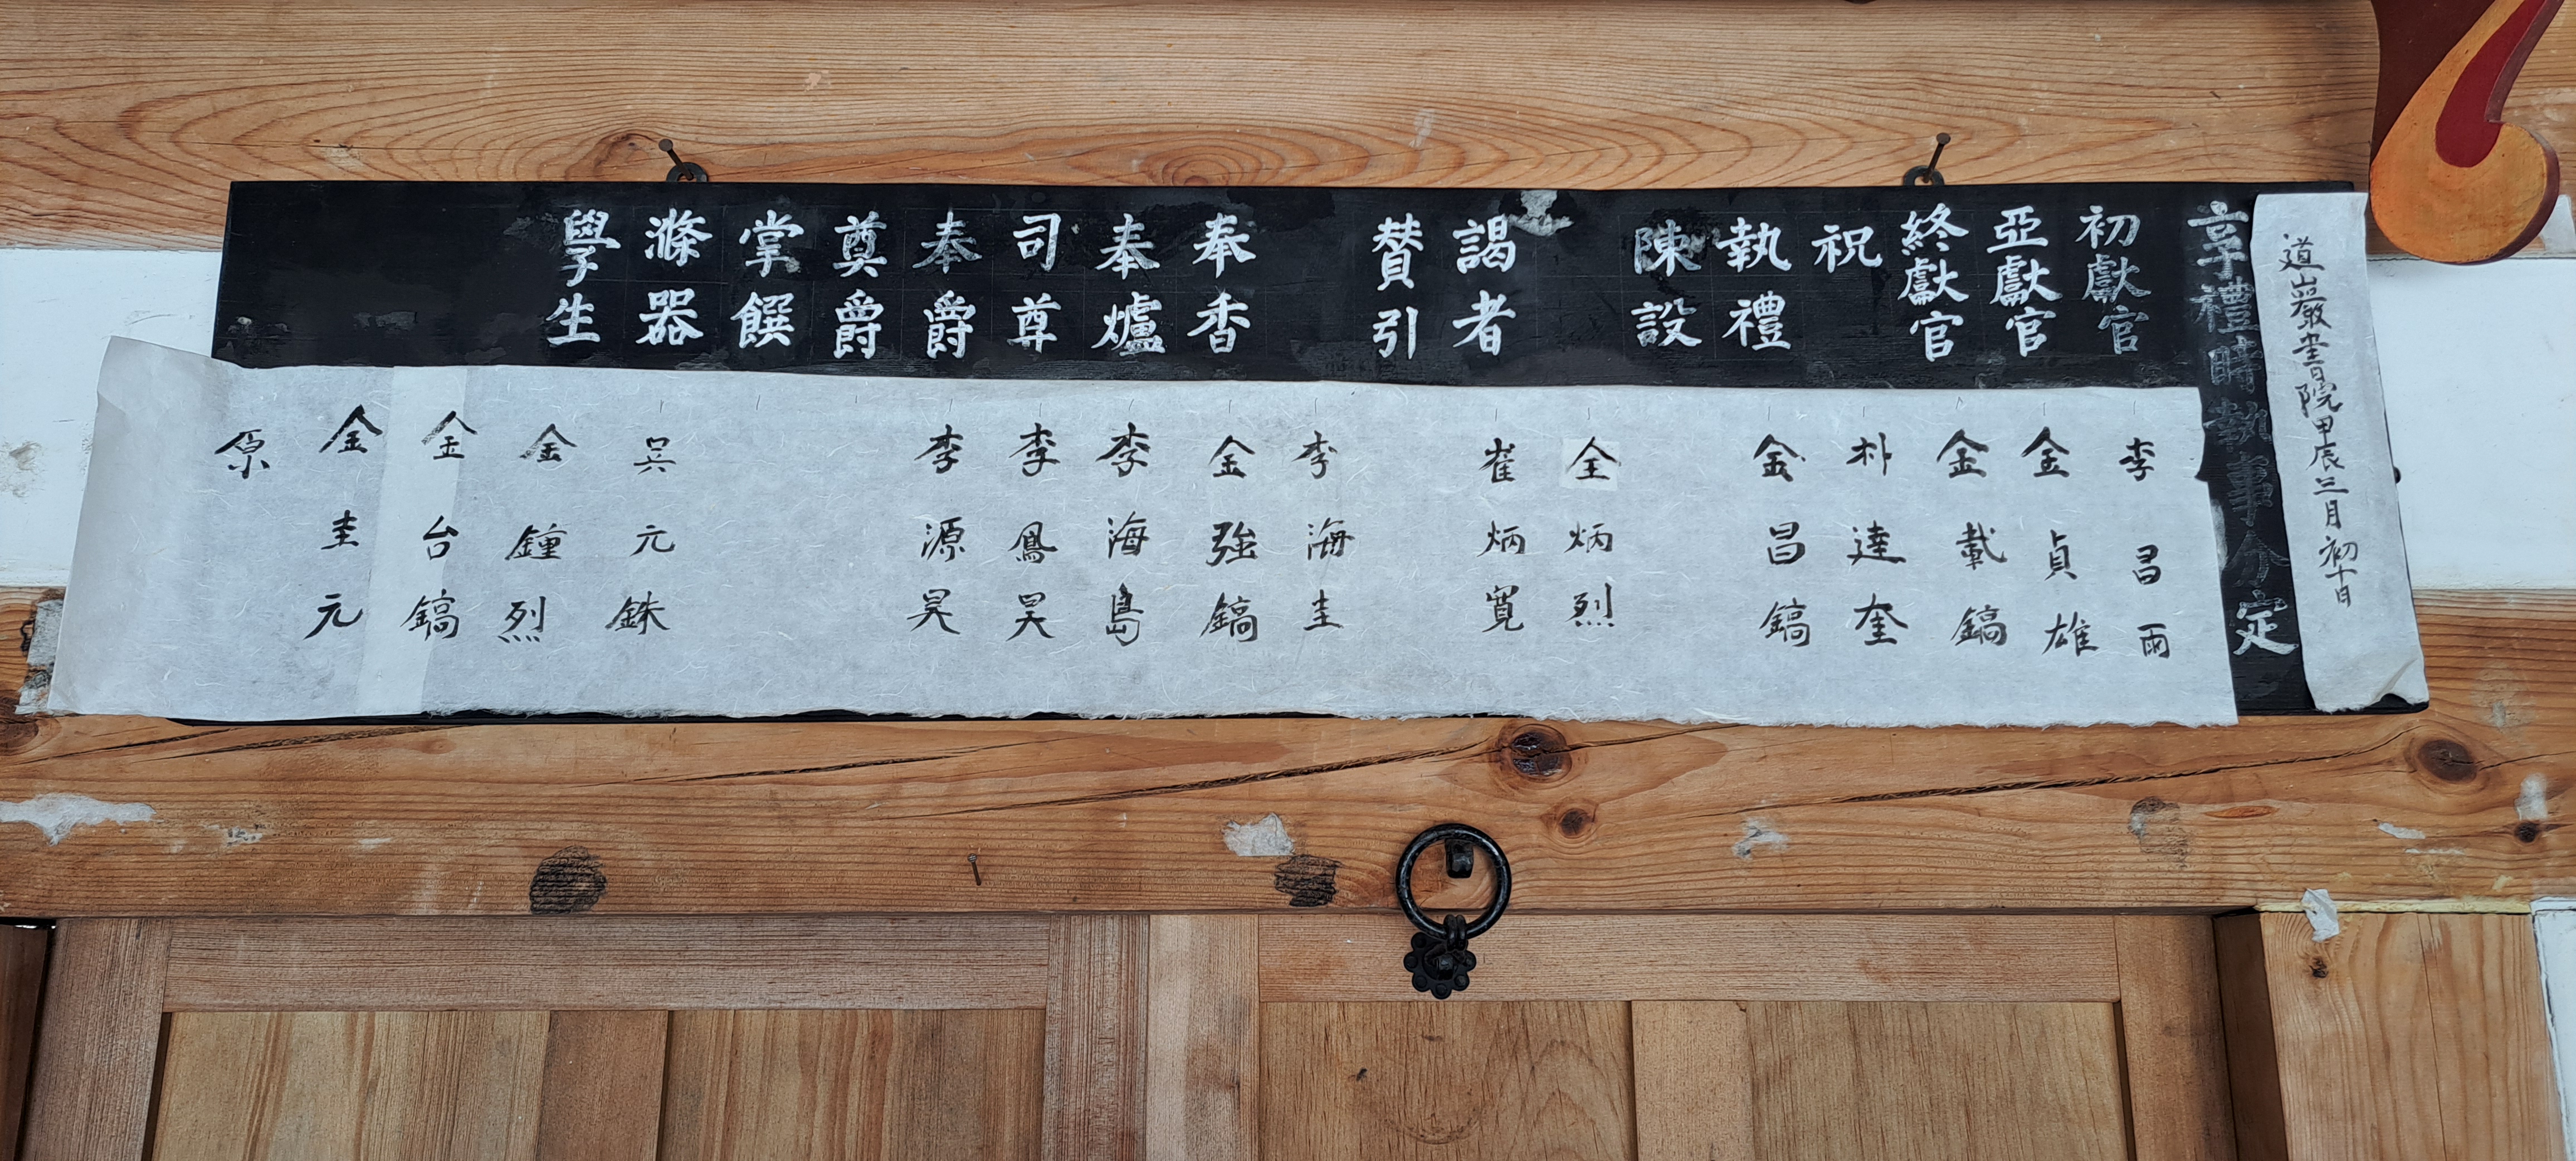 道巖書院甲辰三月初十日
享禮時執事分定
初獻官
亞獻官
終獻官
祝
執禮
陳設
謁者
賛引
奉香
奉爐
司尊
奉爵
奠爵
掌饌
滌器
學生
李昌雨
金貞雄
金載鎬
朴達奎
金昌鎬
全炳烈
崔炳寛
李海圭
金強鎬
李海島
李鳳昊
李源昊
吳元銖
金鍾烈
金台鎬
金圭元
原